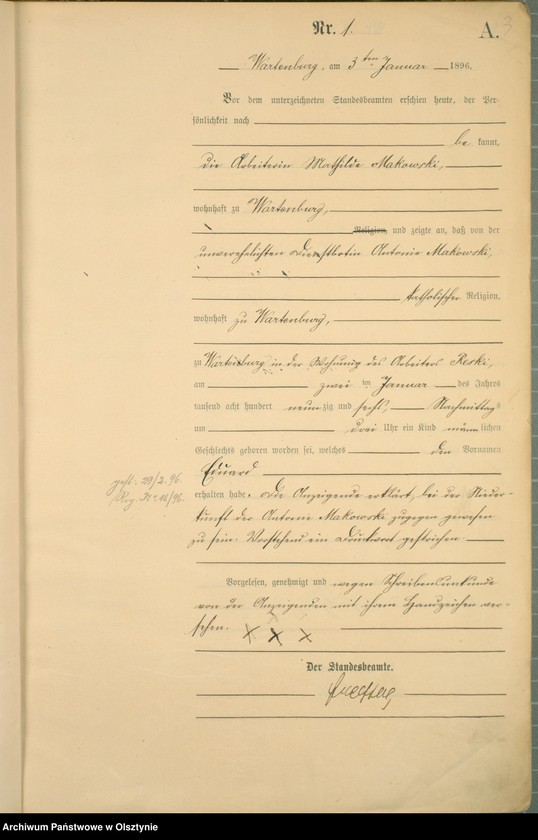 Nr. 1.
A. 3
Wartenburg, am 3ten Januar 1896.
Vor dem unterzeichneten Standesbeamten erschien heute, der Per-
sönlichkeit nach
be kannt,
die Arbeiterin Mathilde Makowski,
wohnhaft zu Wartenburg,
Religion, und zeigte an, daß von der
unverehelichten Dienstbotin Antonie Makowski,
katholischer Religion,
wohnhaft zu Wartenburg,
zu Wartenburg in der Wohnung des Arbeiters Reski,
am zwei ten Januar des Jahres
tausend acht hundert neun zig und sechs, Nachmittags
um drei Uhr ein Kind männ lichen
Geschlechts geboren worden sei, welches den Vornamen
Eduard
erhalten habe. Die Anzeigende erklärt, bei der Nieder-
kunft der Antonie Makowski zugegen gewesen
zu sein. Vorstehend ein Druckwort gestrichen.
gest. 29/2. 96.
Reg. No 18/96.
Vorgelesen, genehmigt und wegen Schreibensunkunde
von der Anzeigenden mit ihrem Handzeichen ver-
sehen. X X X
Der Standesbeamte.
Archiwum Państwowe w Olsztynie